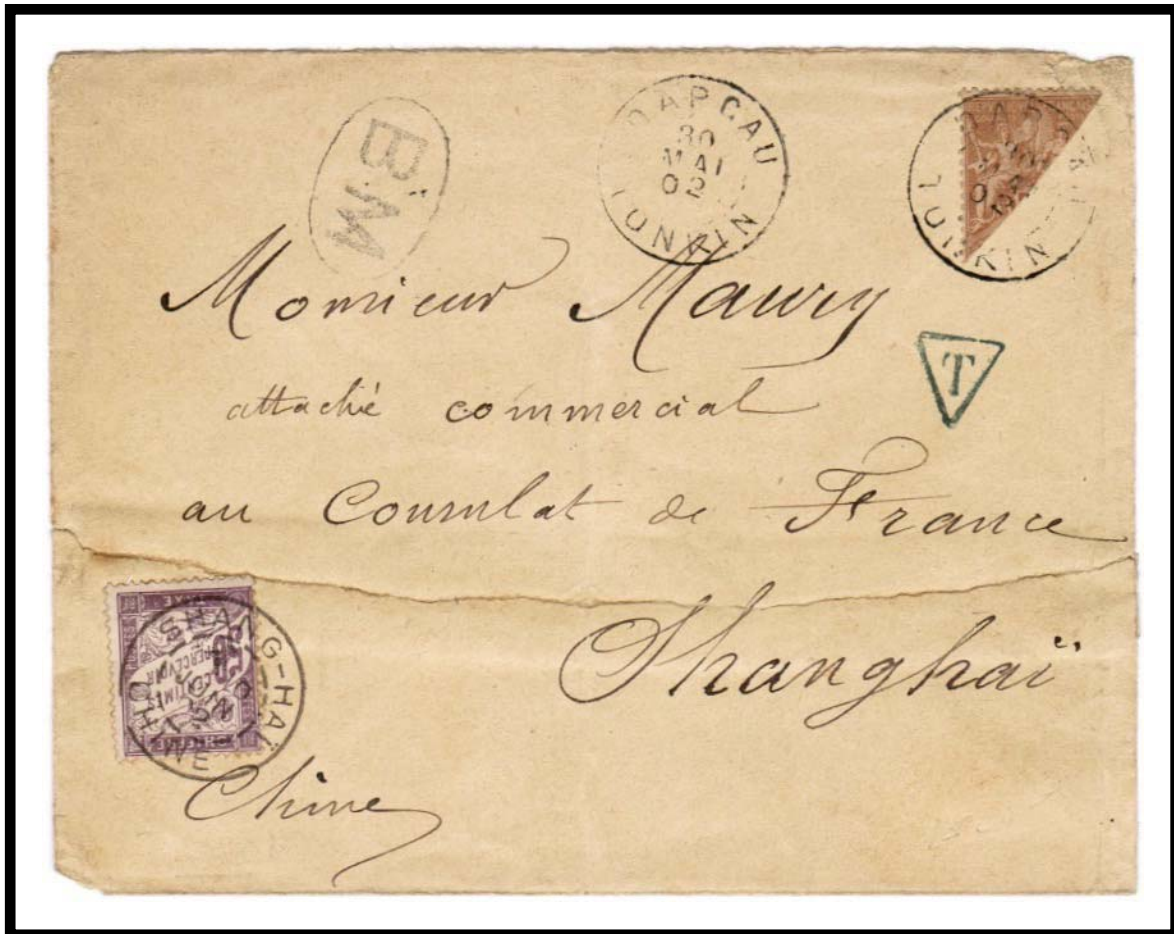 BM
DAPCAU
30
MAI
02
TONKIN
TONKIN
Monsieur Maury
T
attaché commercial
au Consulat de France
Shanghaï
SHANG-HAÏ
CHINE
PERCEVOIR
Chine